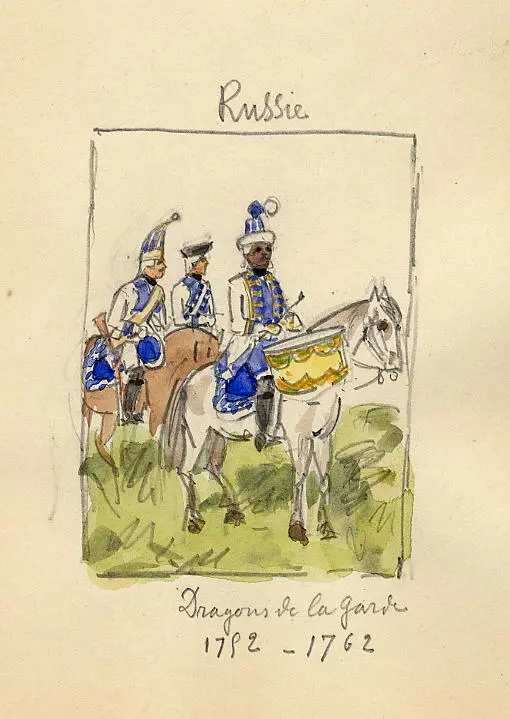 Russie
Dragons de la Garde
1752 - 1762